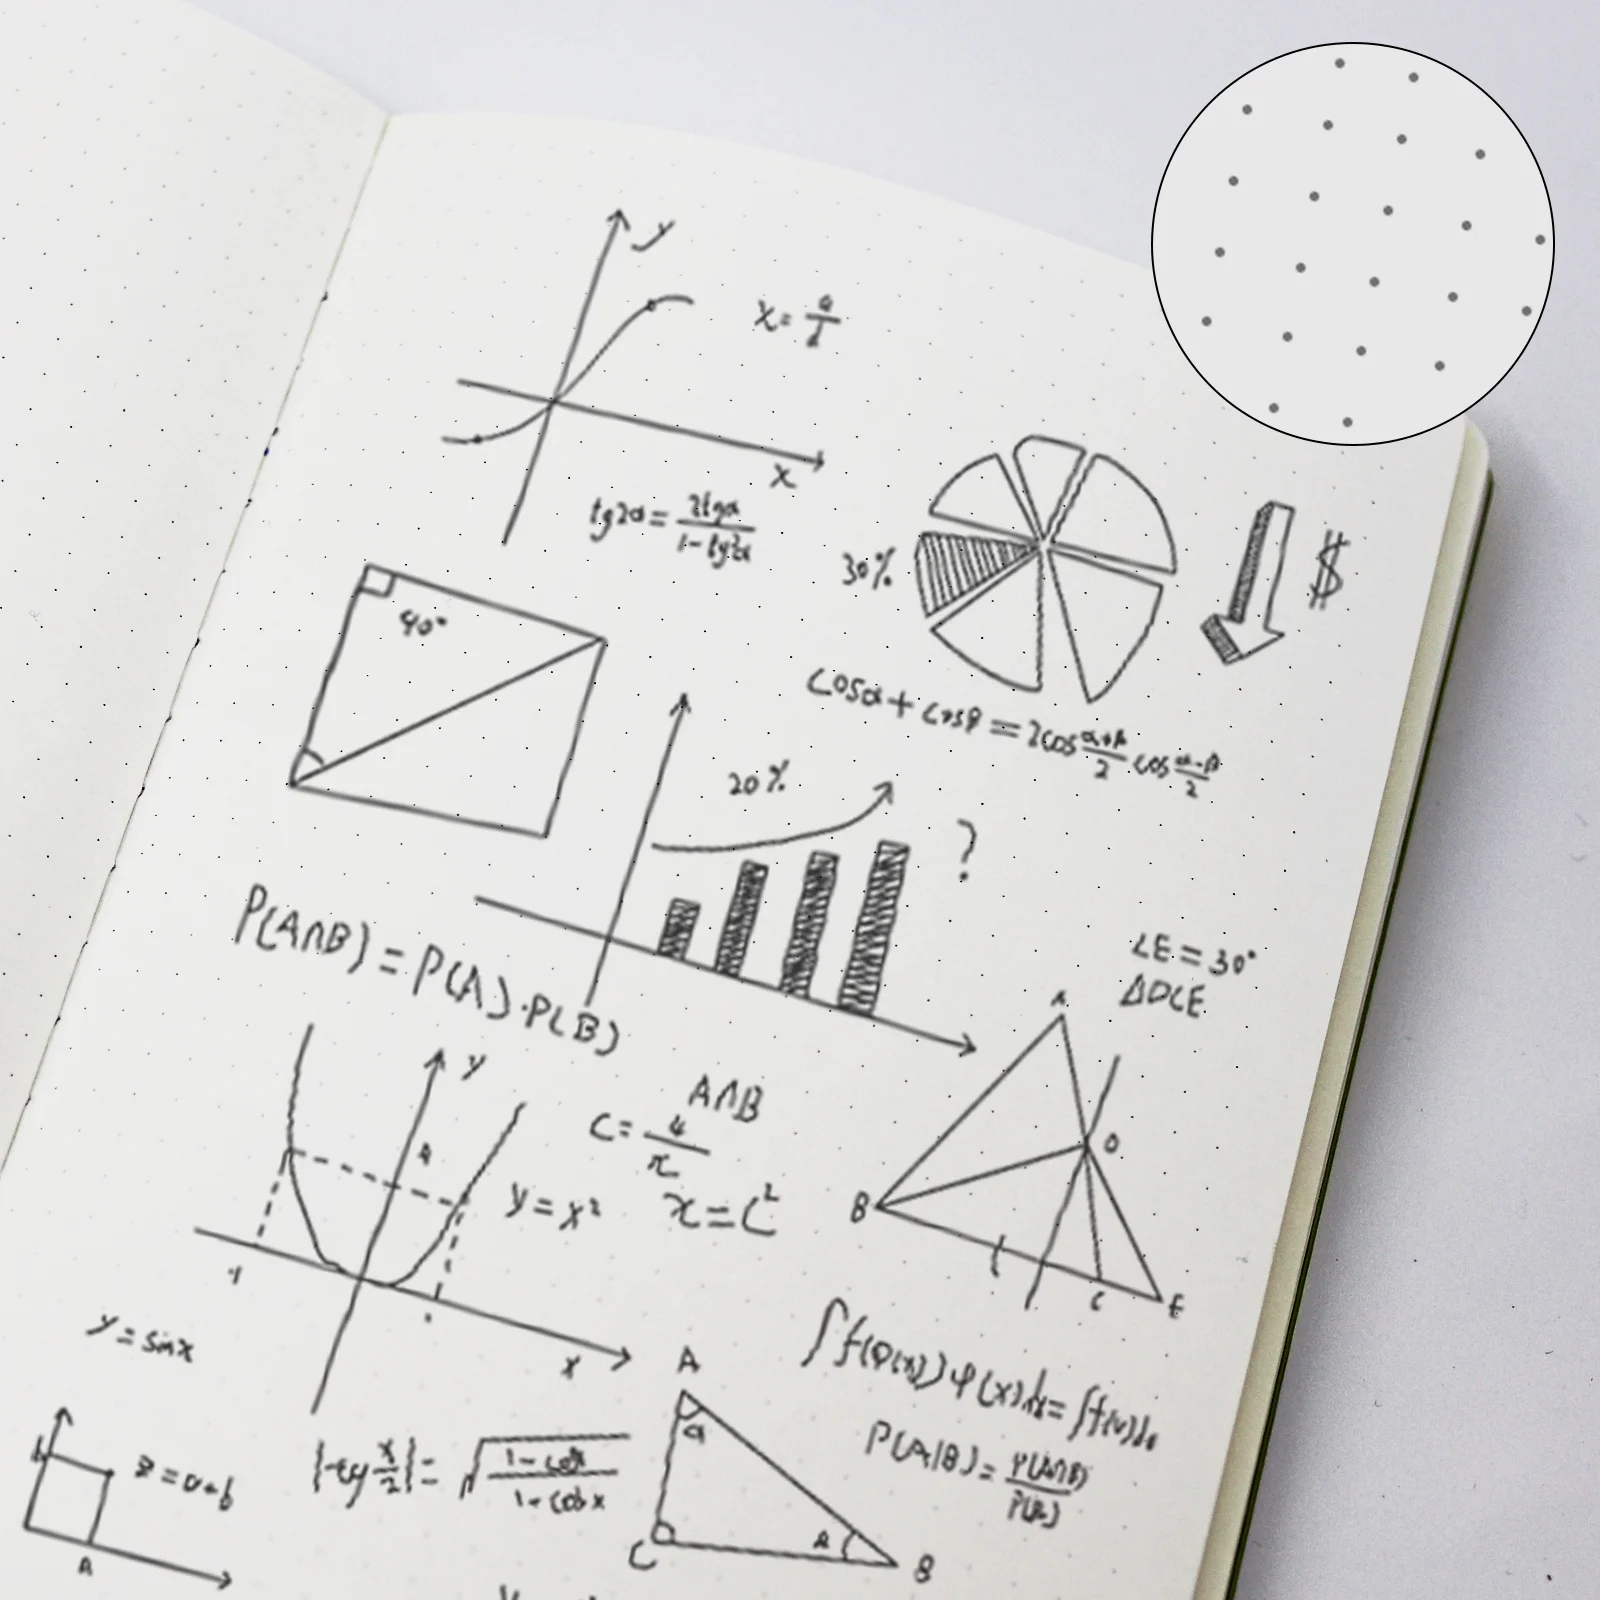 y
x = a/2
x
tg2α = 2tgα / 1 - tg²α
30%
$
40°
cosα + cosβ = 2cos α+β/2 cos α-β/2
20%
?
P(A∩B) = P(A)·P(B)
∠E = 30°
ΔDCE
A
y
A∩B
C = 4/π
D
y = x²
x = C²
B
-1
C
E
x
y = sinx
A
∫f(φ(x))φ(x)dx = ∫f(v)dv
α
P(A|B) = P(A∩B) / P(B)
b
z = a+b
|tg x/2| = √ 1-cosx / 1+cosx
A
C
B